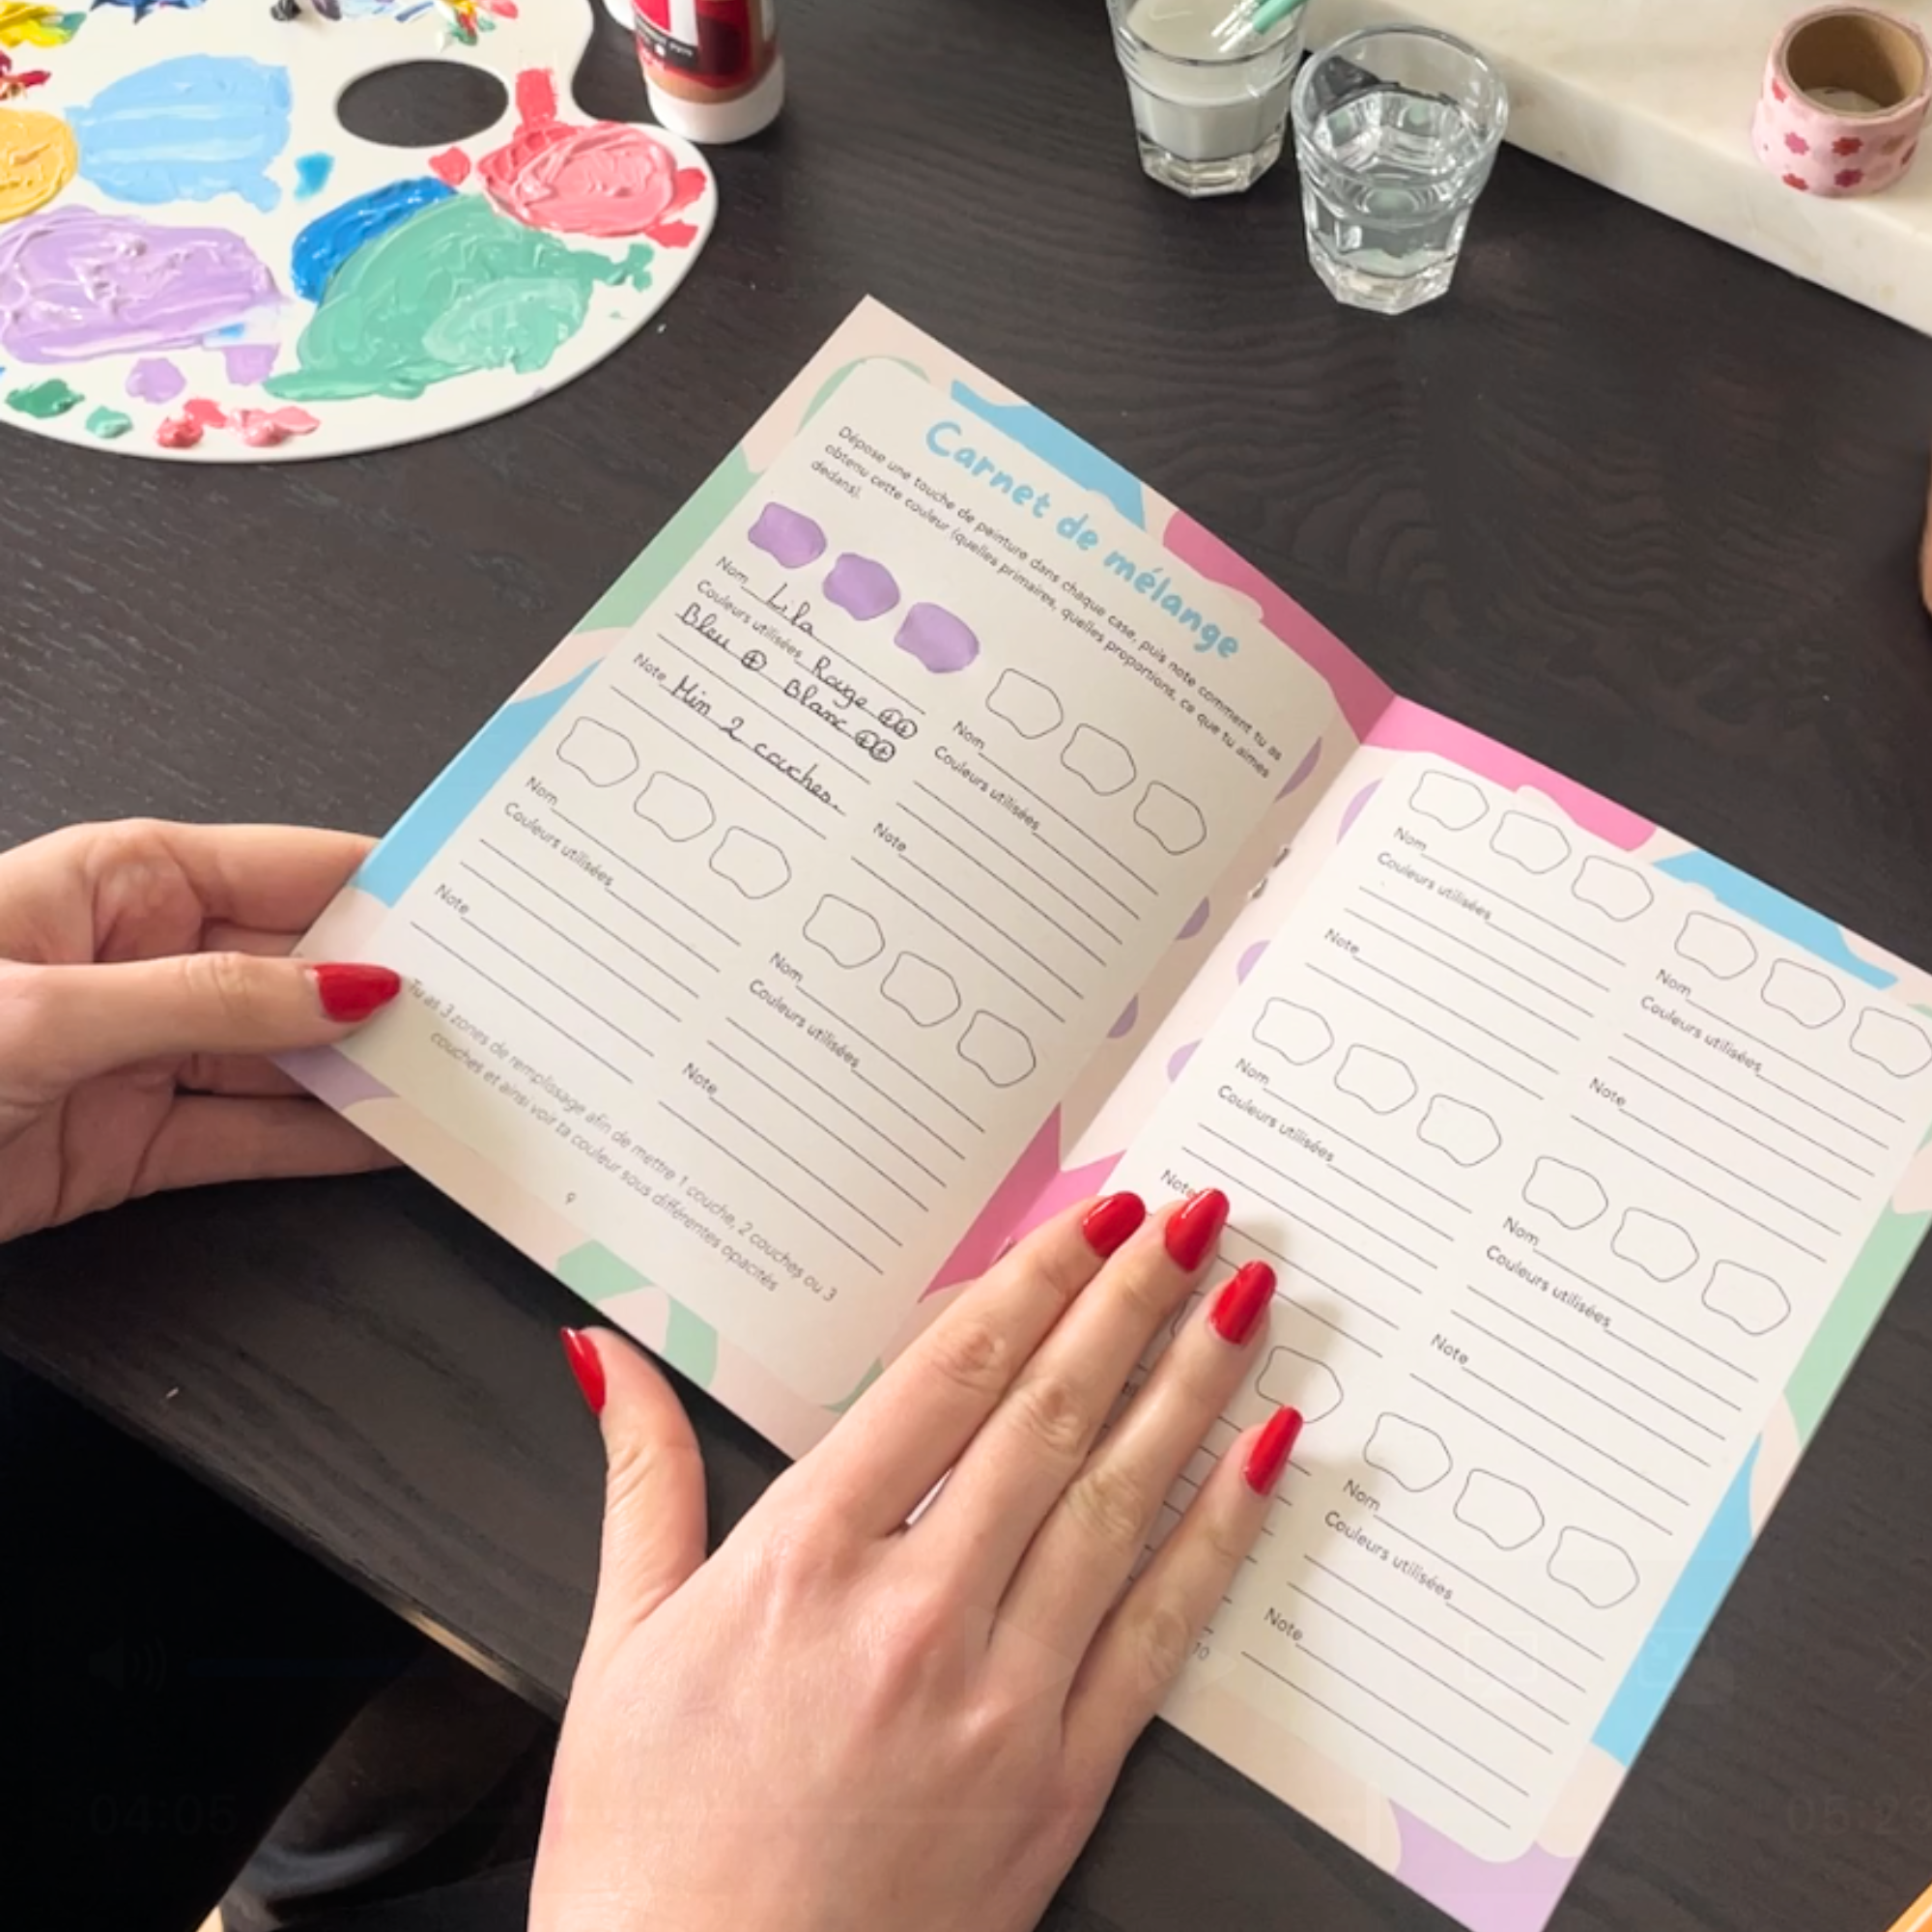 Carnet de mélange
Dépose une touche de peinture dans chaque case, puis note comment tu as
obtenu cette couleur (quelles primaires, quelles proportions, ce que tu aimes
dedans).
Nom Lila
Couleurs utilisées Rouge ⊕⊕
Bleu ⊕ Blanc ⊕⊕
Note Min 2 couches.
Nom
Couleurs utilisées
Note
Nom
Couleurs utilisées
Note
Nom
Couleurs utilisées
Note
Tu as 3 zones de remplissage afin de mettre 1 couche, 2 couches ou 3
couches et ainsi voir ta couleur sous différentes opacités
9
Nom
Couleurs utilisées
Note
Nom
Couleurs utilisées
Note
Nom
Couleurs utilisées
Note
Nom
Couleurs utilisées
Note
Nom
Couleurs utilisées
Note
10
04:05